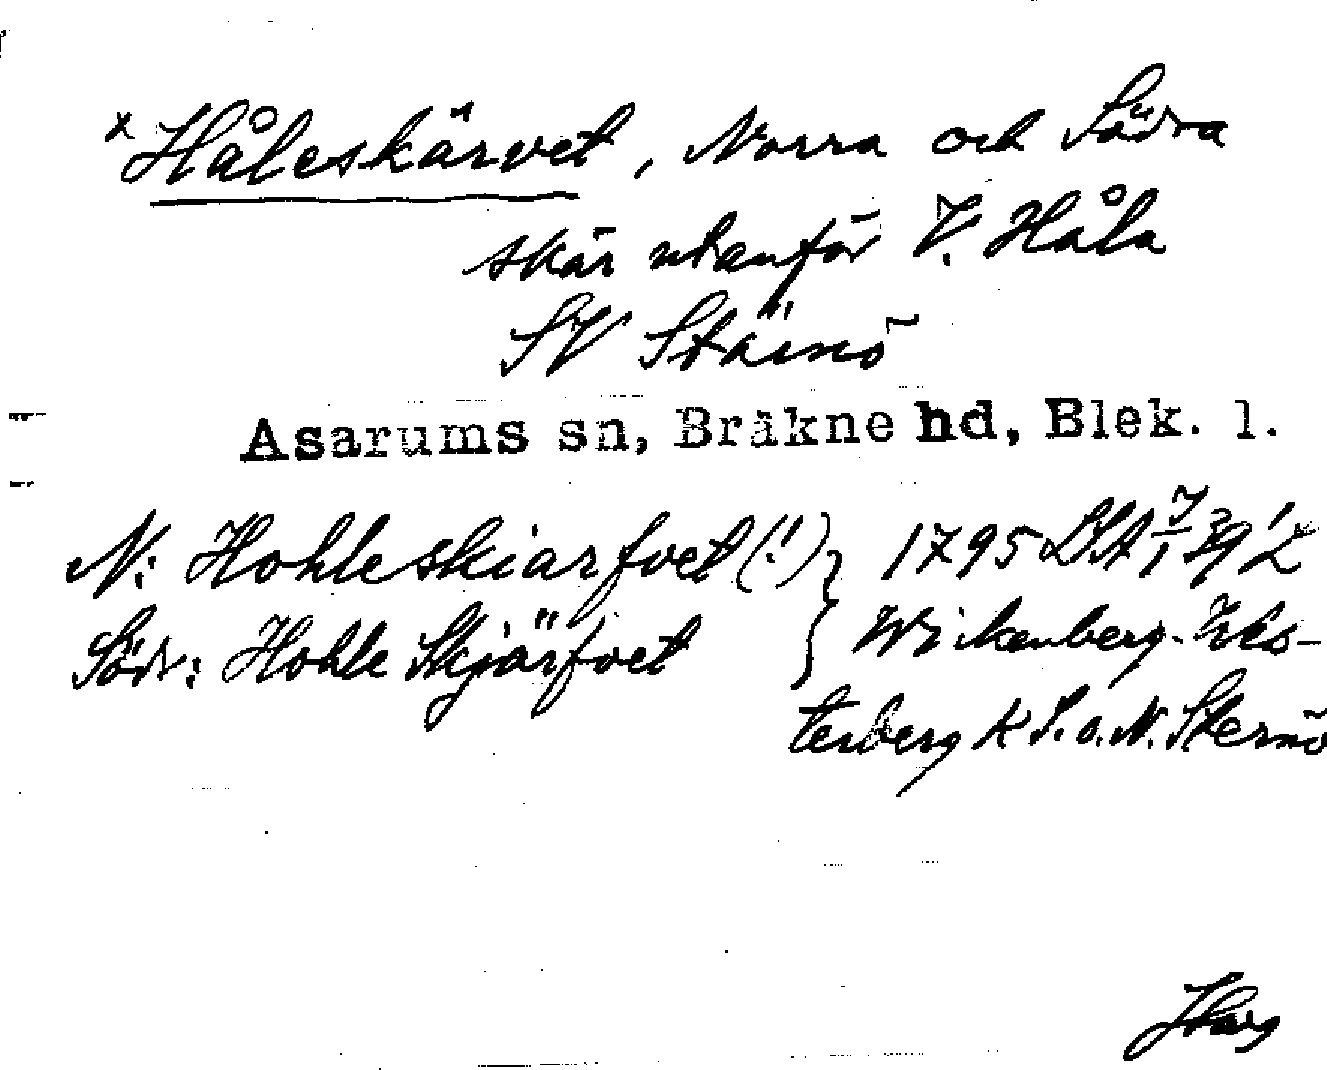 x Håleskärvet, Norra och Södra
skär utanför V. Håla
SV Stärnö
Asarums sn, Bräkne hd, Blek. l.
N: Hohleskiarfvet (!) } 1795 LSA
Södr: Hohle Skjärfvet } Wickenberg-
terberg K S. o. N. Sternö